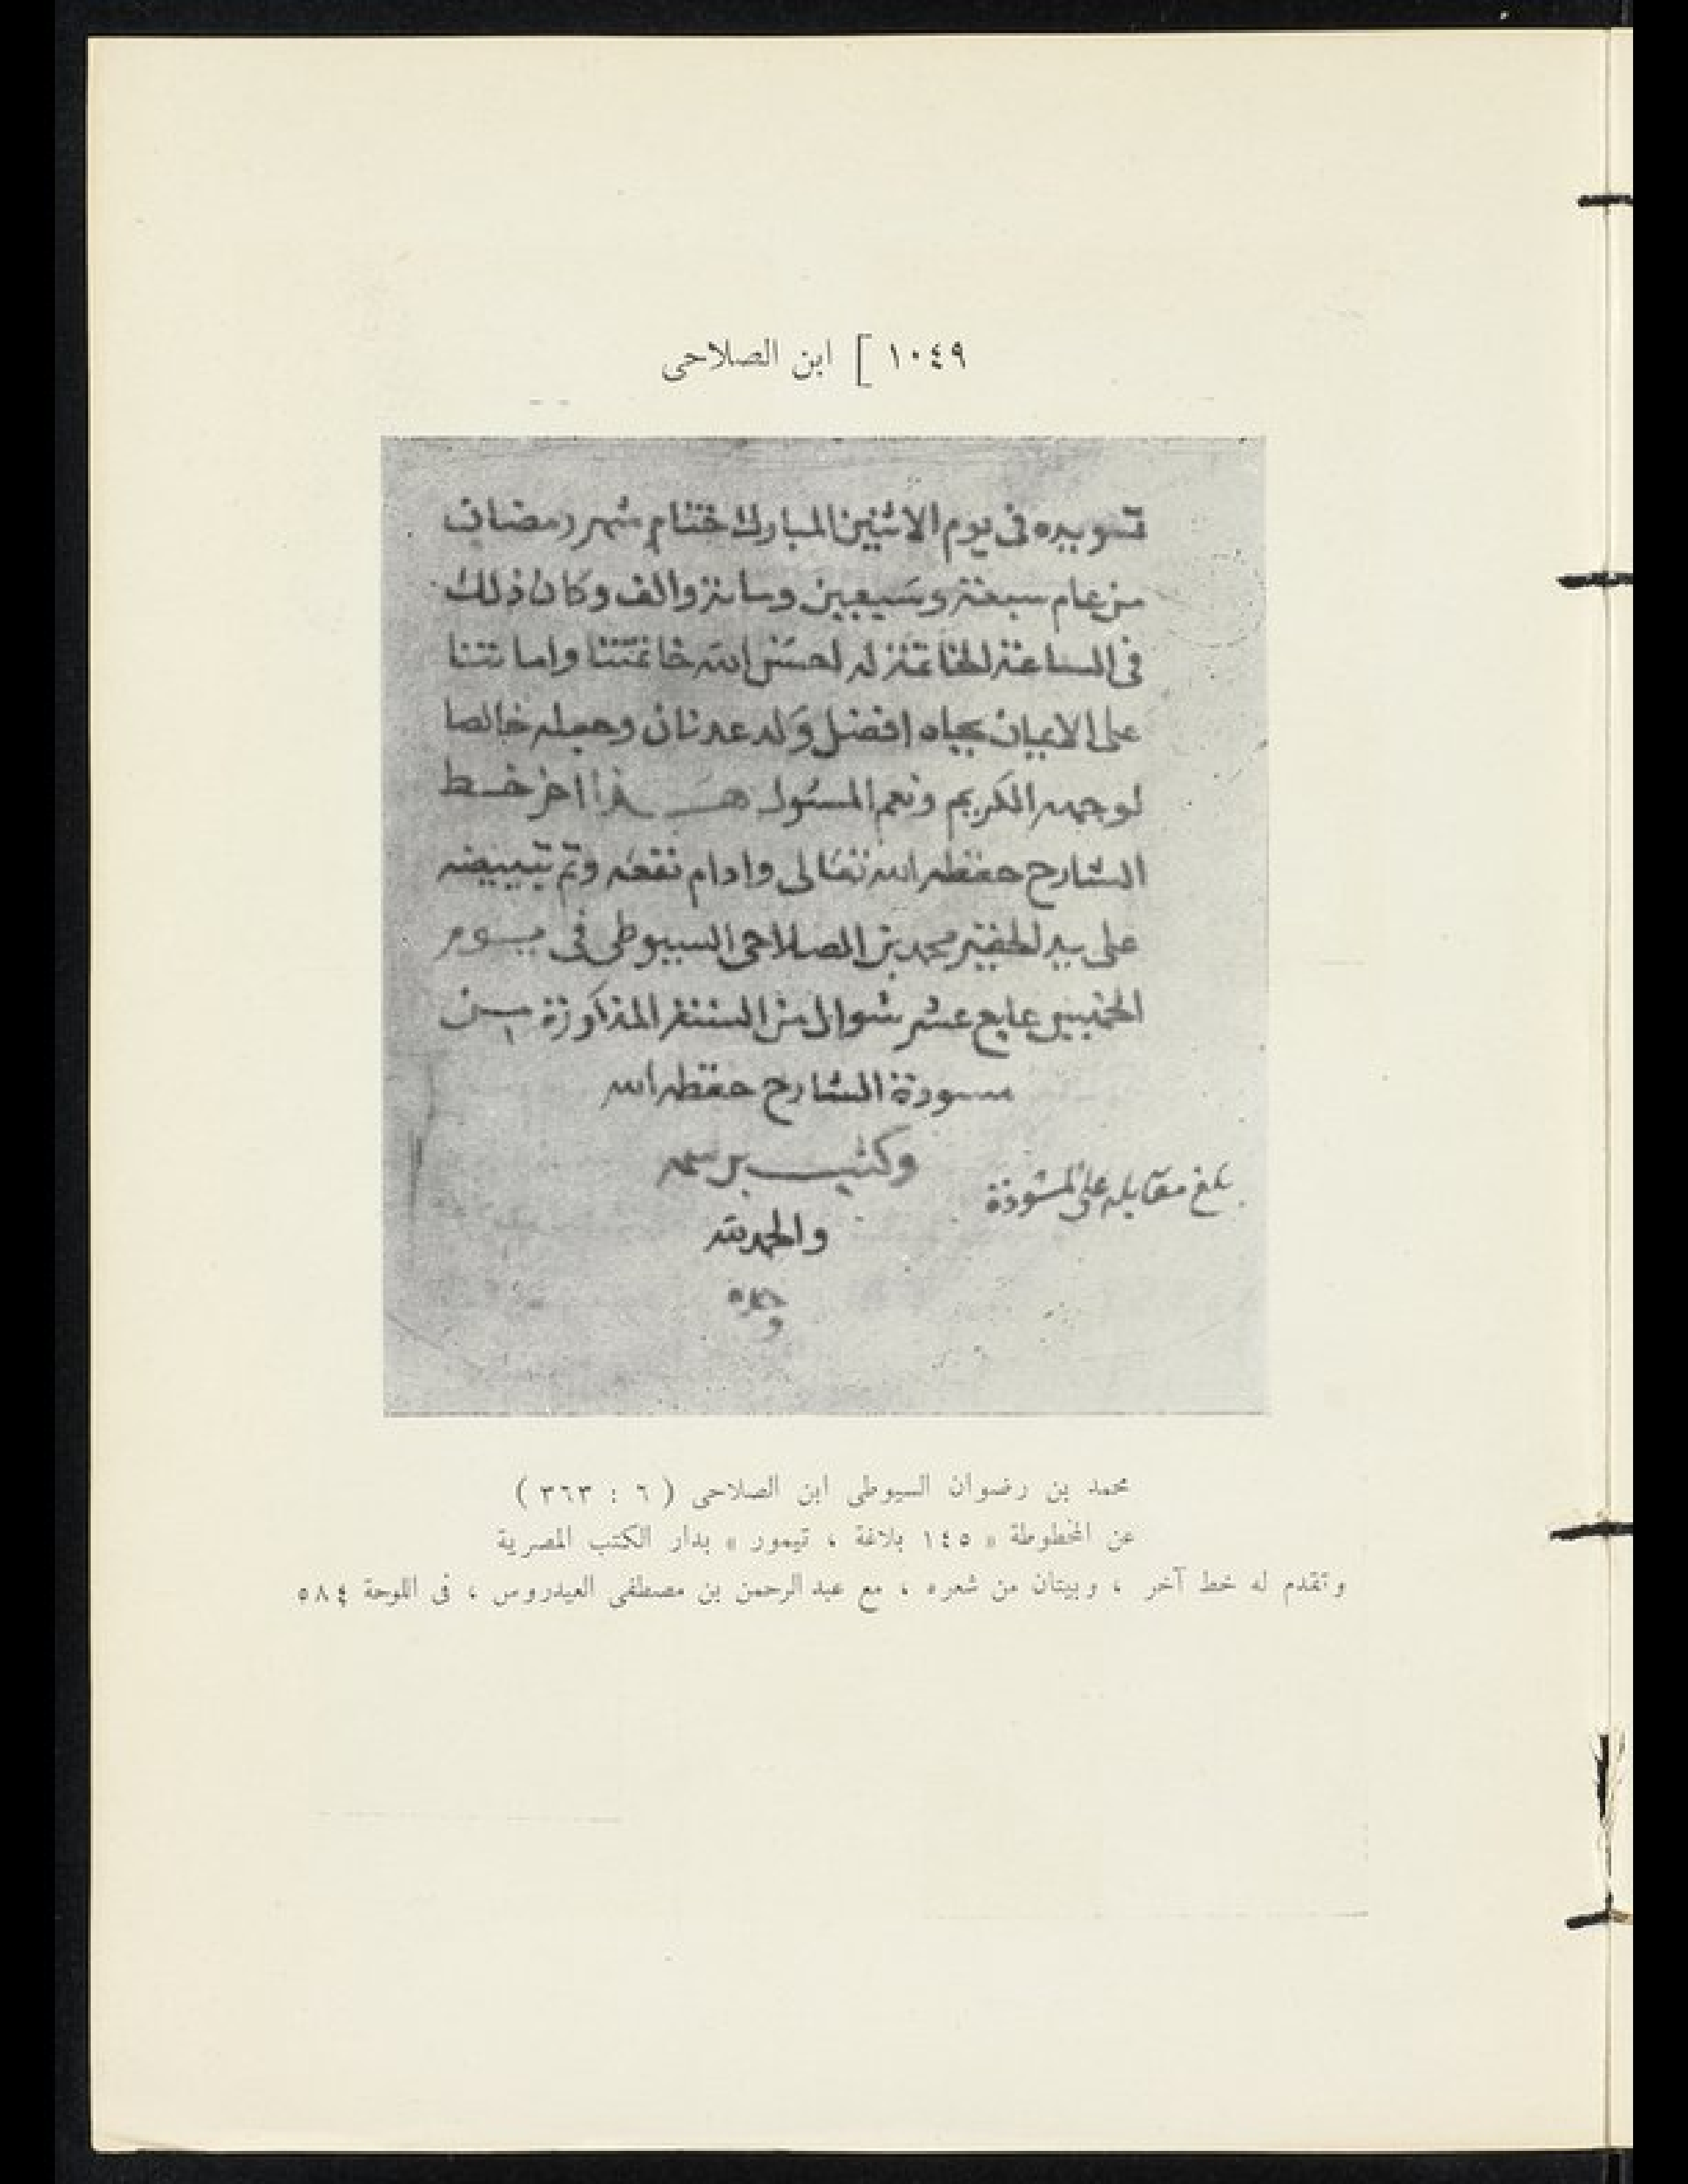 ١٠٤٩ [ ابن الصلاحى
تسويده فى يوم الاثنين المبارك ختام شهر رمضان
من عام سبعة وسبعين وماية والف وكان ذلك
فى الساعة الخاتمة له احسن الله خاتمتنا واماتنا
على الايمان بجاه افضل ولد عدنان وجعله خالصا
لوجهه الكريم ونعم المسئول هذا اخر خط
الشارح حفظه الله تعالى وادام نفعه وتم تبييضه
على يد محمد بن الصلاحى السيوطى فى يوم
الخميس عشر شوال من السنة المذكورة من
مسودة الشارح حفظه الله
وكتب برسمه
بلغ مقابله على المسودة
والحمد لله
وحده
محمد بن رضوان السيوطى ابن الصلاحى ( ٦ : ٣٦٣ )
عن المخطوطة « ١٤٥ بلاغة ، تيمور » بدار الكتب المصرية
وتقدم له خط آخر ، وبيتان من شعره ، مع عبد الرحمن بن مصطفى العيدروس ، فى اللوحة ٥٨٤